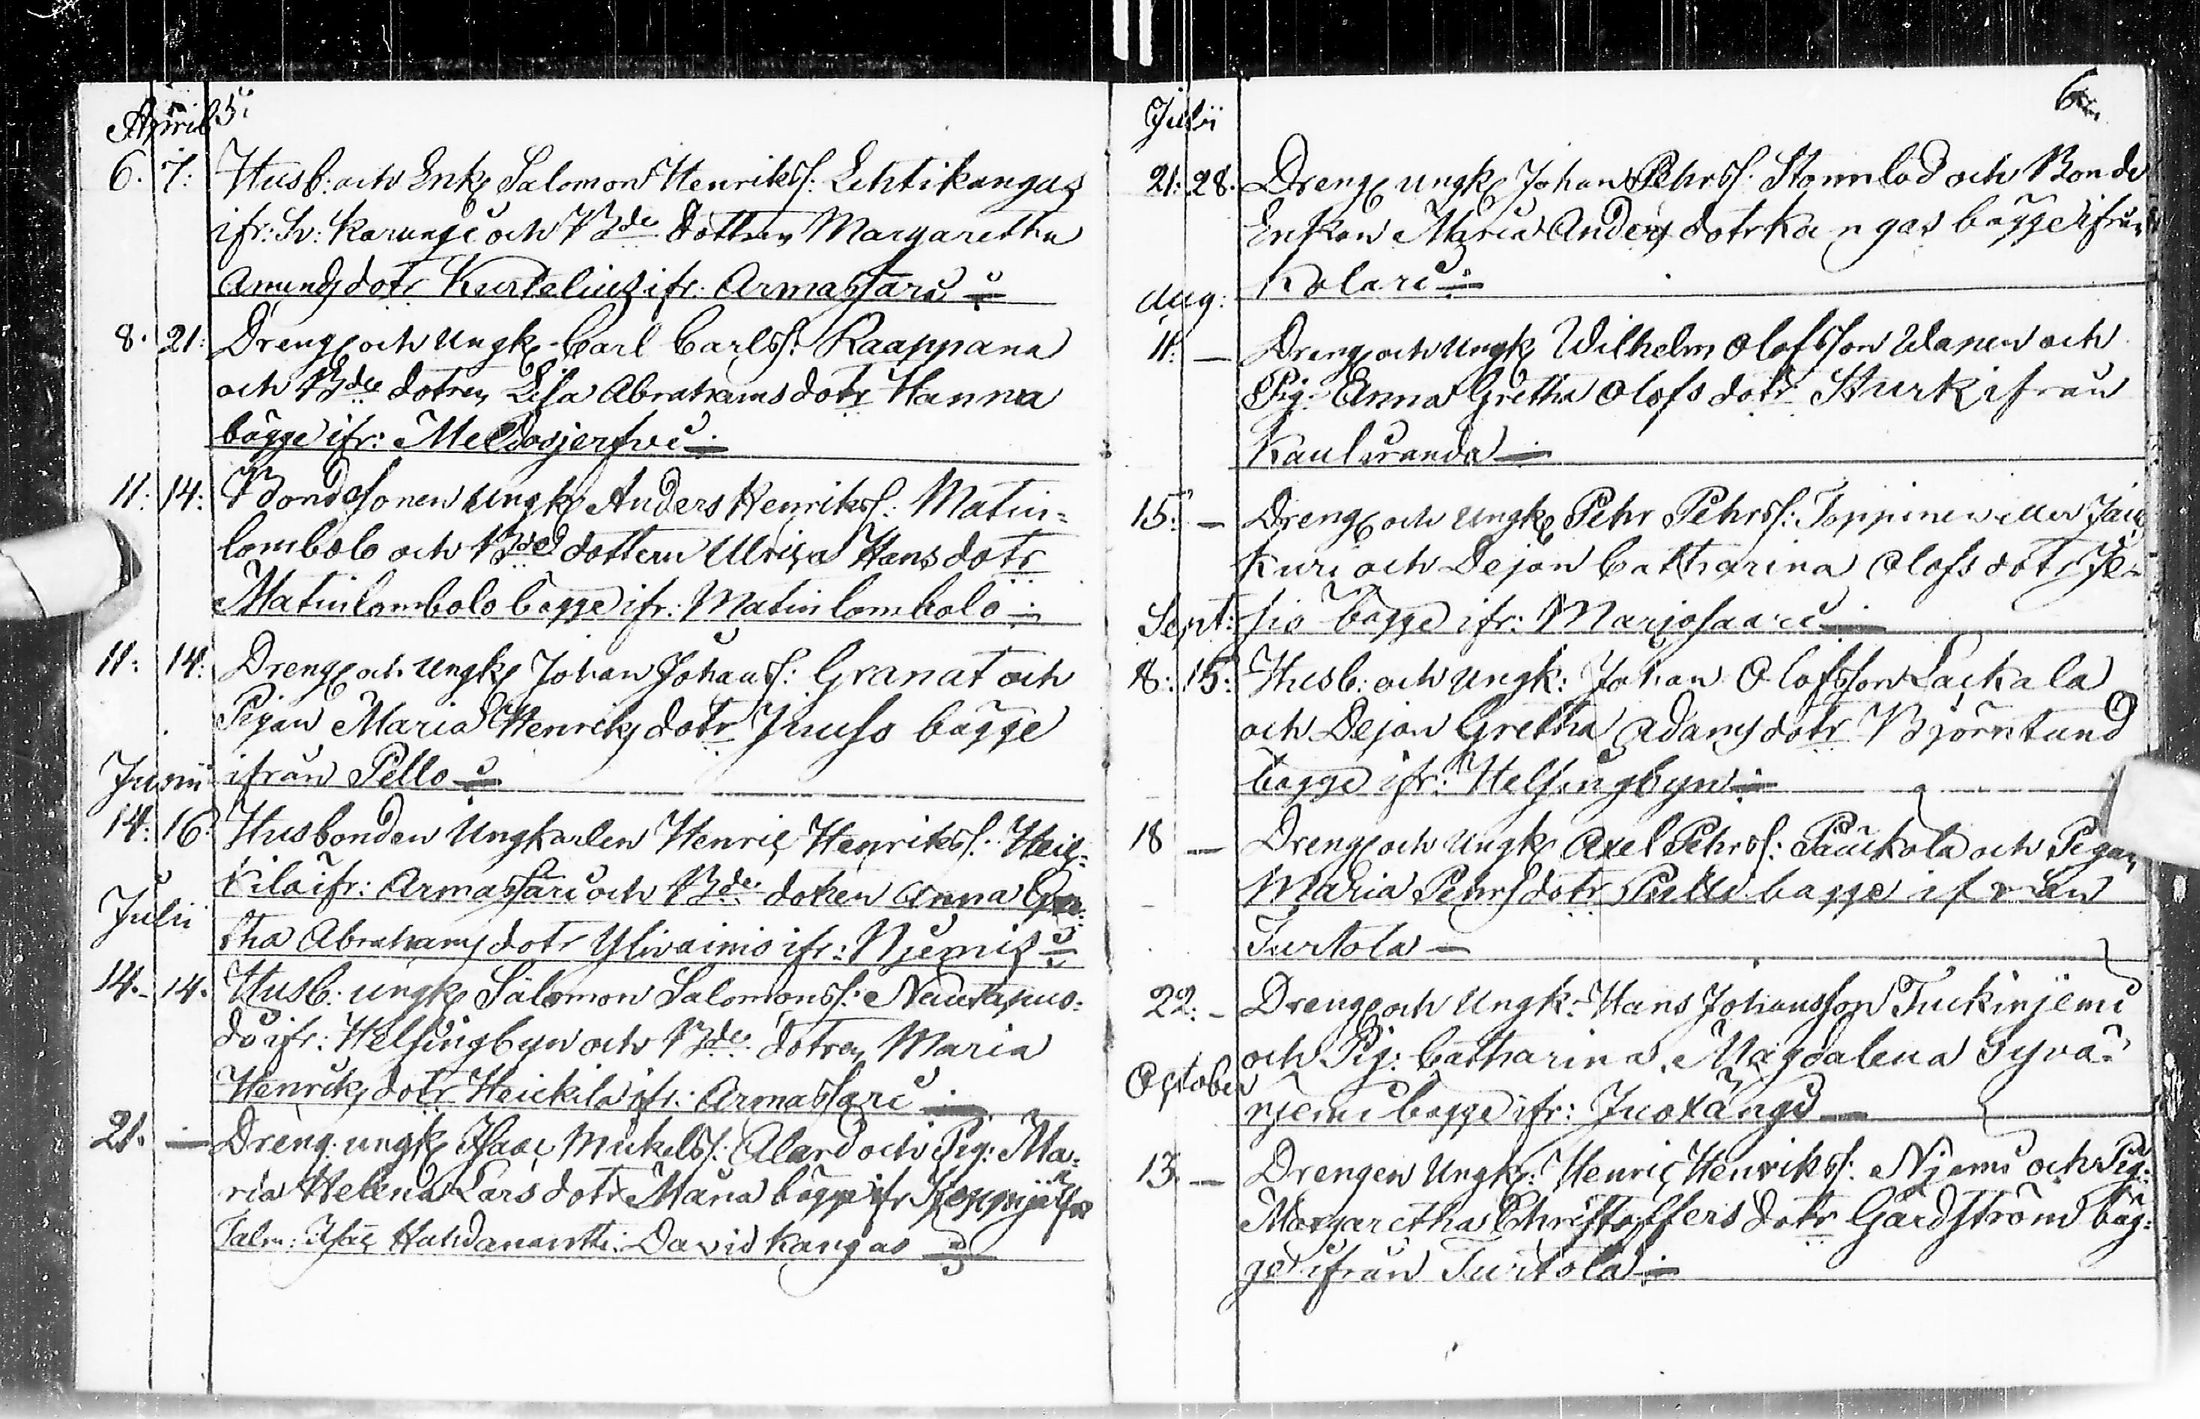 April 5:
6. 7: Husb: och Enk. Salomon Henrikss: Lehtikangas
ifr: Sv: Karungi och Bde dottren Margaretha
Amunds dotr Kurtelius ifr: Armassari
8. 21: Dreng och Ungk. Carl Carlss: Kaappana
och Bde dotren Lisa Abrahams dotr Hanna
bägge ifr: Meldosjerfvi
11: 14: Bondesonen Ungk Anders Henrikss: Matin=
lombolo och Bde dottern Ulrica Hans dotr
Matinlombolo bägge ifr: Matinlombolo
11: 14: Dreng och Ungk Johan Johanss: Granat och
Pigan Maria Henriks dotr Juuso bägge
Junii ifrån Pello
14: 16: Husbonden Ungkarlen Henric Henrikss: Heic=
kilä ifr: Armassari och Bde dotren Anna Gre=
Julii tha Abrahams dotr Ylivainio ifr: Njemis
14. 14. Husb: Ungk Salomon Salomonss: Nautapuo=
do ifr: Helsingbyn och Bde dotren Maria
Henriks dotr Heickilä ifr: Armassari
21. — Dreng. Ungk Isaac Mickelss: Alard och Pig: Ma=
ria Helena Lars dotr Mana bägge ifr
Talm: Isac David Kangas
Julii 6
21: 28. Dreng Ungk Johan Pehrss: och Bonde
Enkan Maria Anders dotr Kangas bägge ifrån
Aug: Kolari
11: — Dreng och Ungk Wilhelm Olofsson Wanen och
Pig: Anna Gretha Olofs dotr Sturk ifrån
Kauliranda
15: — Dreng och Ungk Pehr Pehrss: Toppinen eller Jau
kuri och Dejan Catharina Olofs dotr
Sept: sio bägge ifr: Marjosaari
8: 15: Husb: och Ungk: Johan Olofsson Lackala
och Dejan Gretha Adams dotr Björntund
bägge ifr: Helsingbyn
18 — Dreng och Ungk Axel Pehrss: Paückola och Pigan
Maria Pehrs dotr bägge ifrån
Turtola —
22: — Dreng och Ungk: Hans Johansson Tuckinjemi
och Pig: Catharina Magdalena Syvä=
October njemi bägge ifr: Juoxängi
13. — Drengen Ungk: Henric Henrikss: Njemi och Pig:
Margaretha Christoffers dotr Gårdström bäg=
ge ifrån Turtola